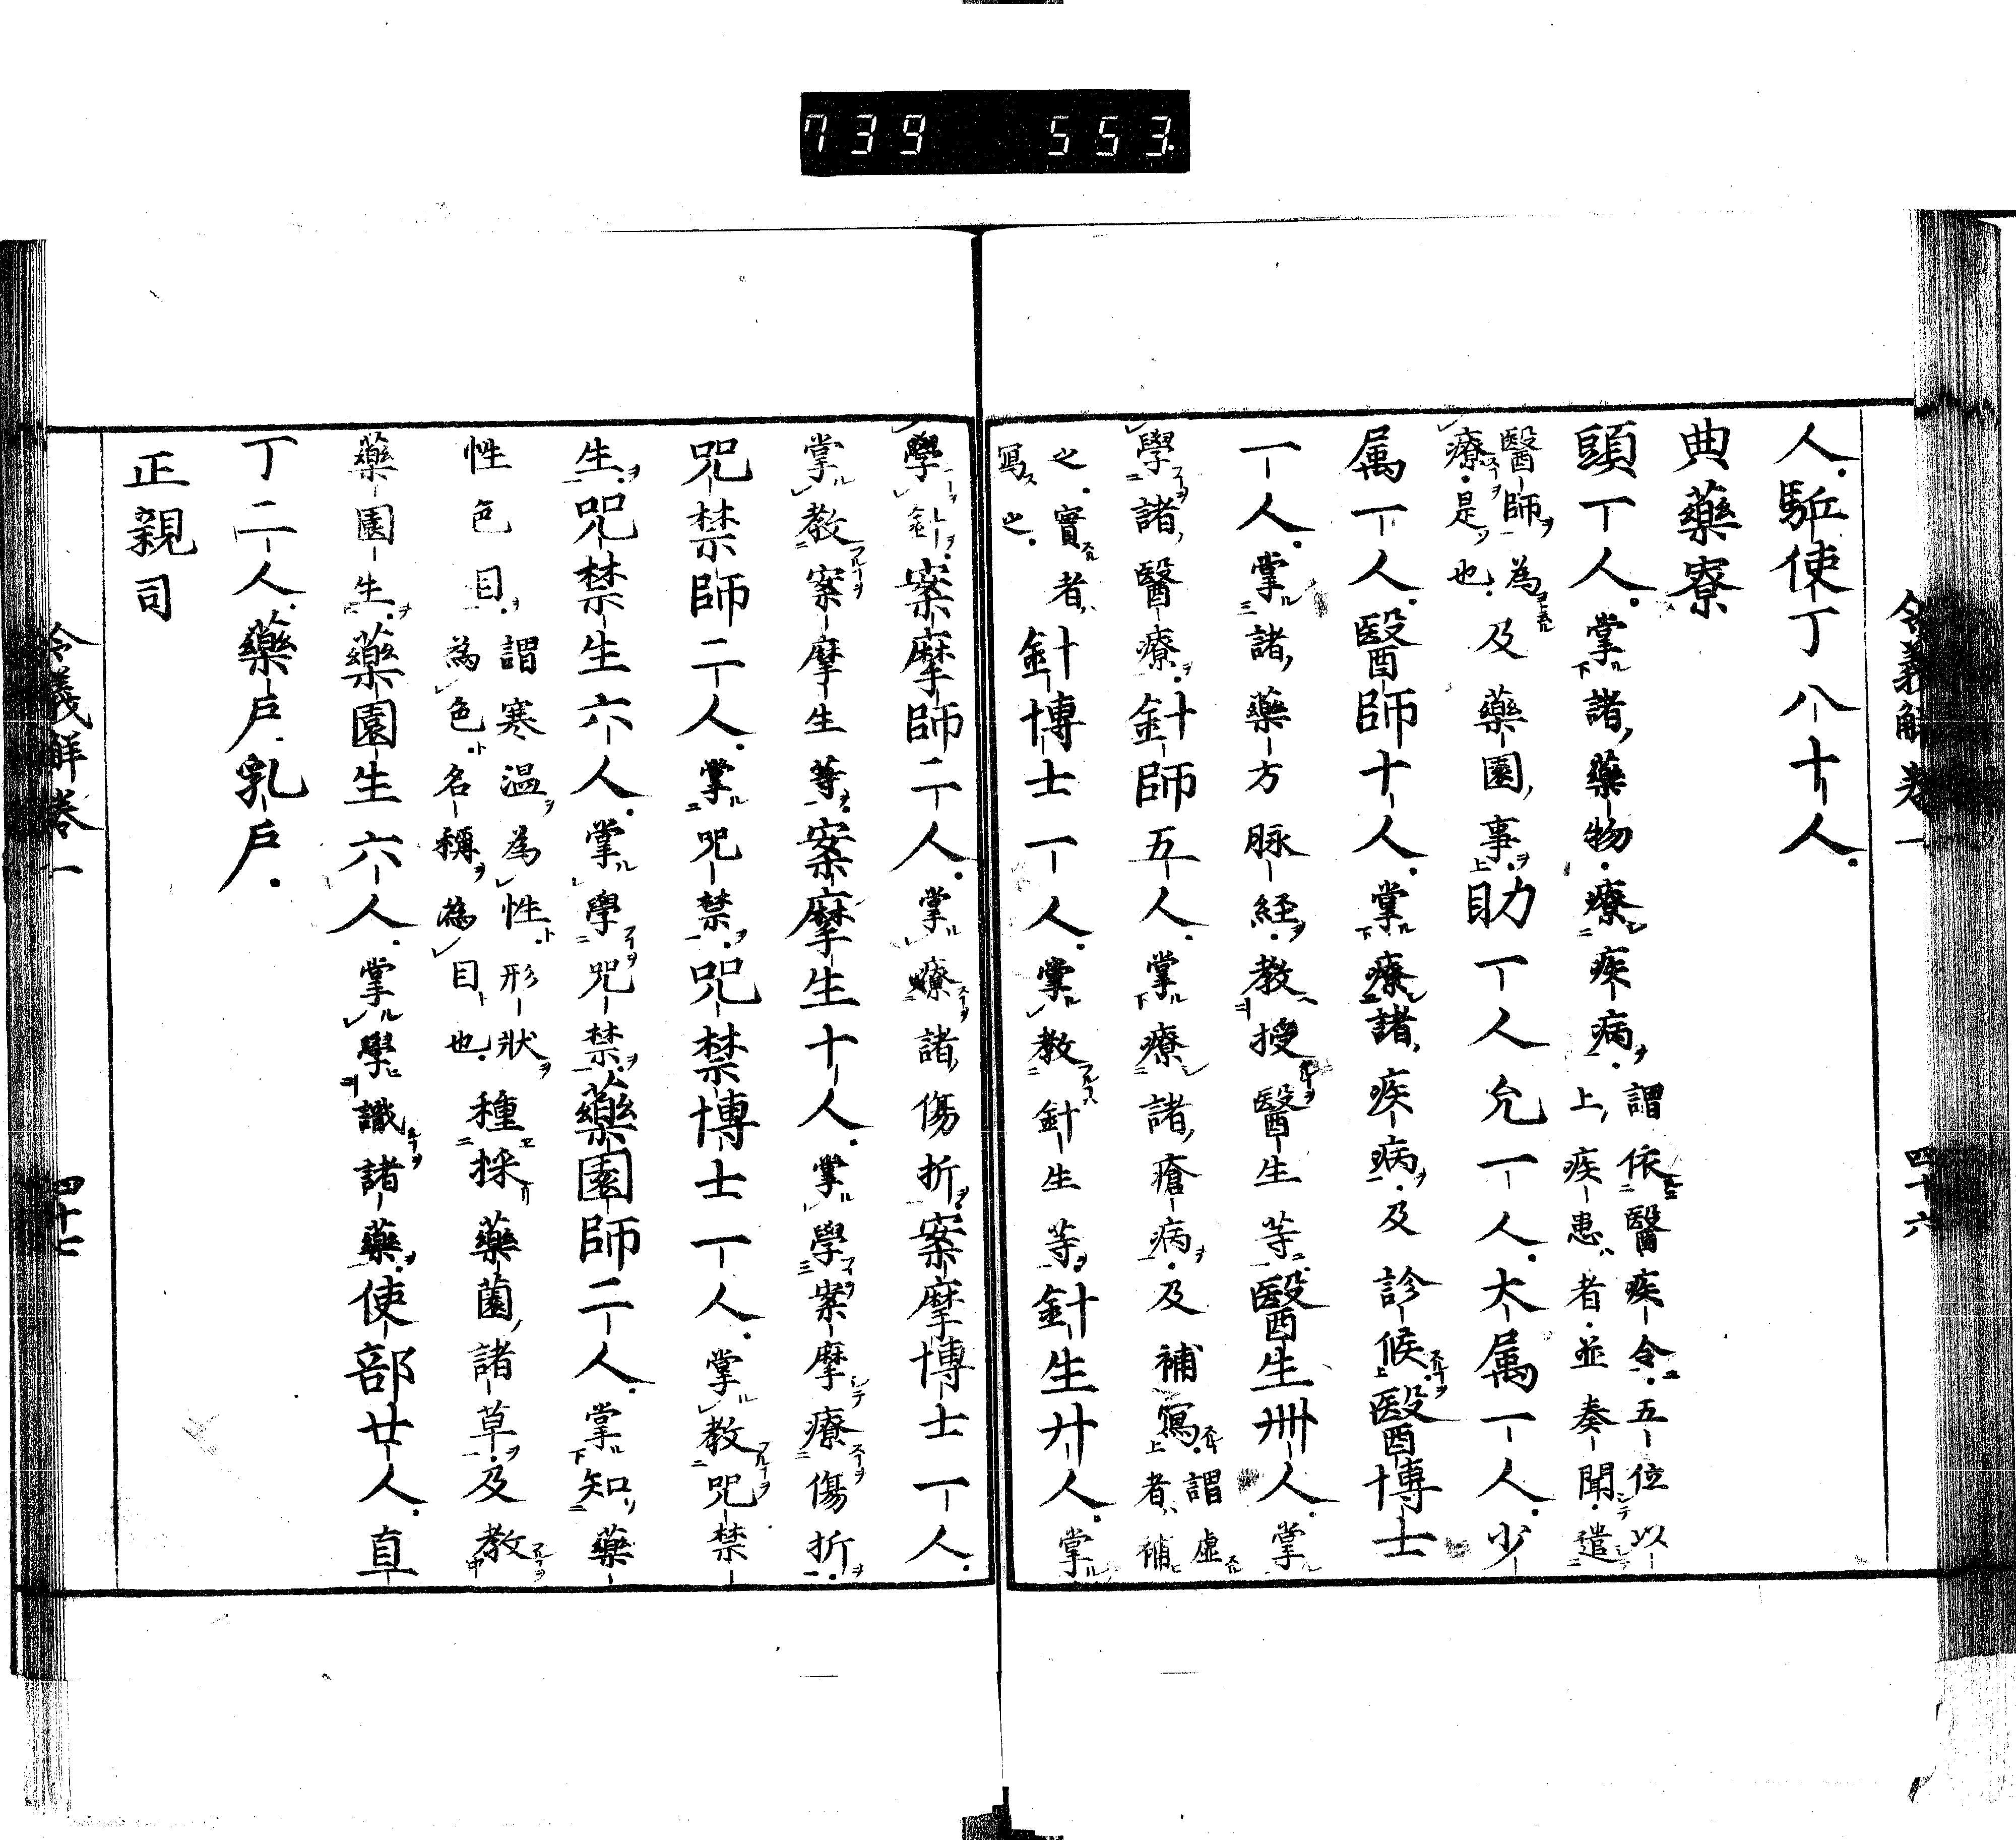 739 553
令義解卷一 四十六
人駈使丁八十人
典藥寮
頭一人掌諸藥物療疾病謂依醫疾令五位以
上疾患者並奏聞遣
醫師為
療是也及藥園事助一人允一人大属一人少
属一人醫師十人掌療諸疾病及診候醫博士
一人掌諸藥方脉経教授醫生等醫生卌人掌
學諸醫療針師五人掌療諸瘡病及補寫謂虛
者補
之實者
寫之針博士一人掌教針生等針生廿人掌
學針案摩師二人掌療諸傷折案摩博士一人
掌教案摩生等案摩生十人掌學案摩療傷折
咒禁師二人掌咒禁咒禁博士一人掌教咒禁
生咒禁生六人掌學咒禁藥園師二人掌知藥
性色目謂寒温為性形狀
為色名稱為目也種採藥園諸草及教
藥園生藥園生六人掌學識諸藥使部廿人直
丁二人藥戶乳戶
正親司
令義解卷一 四十七